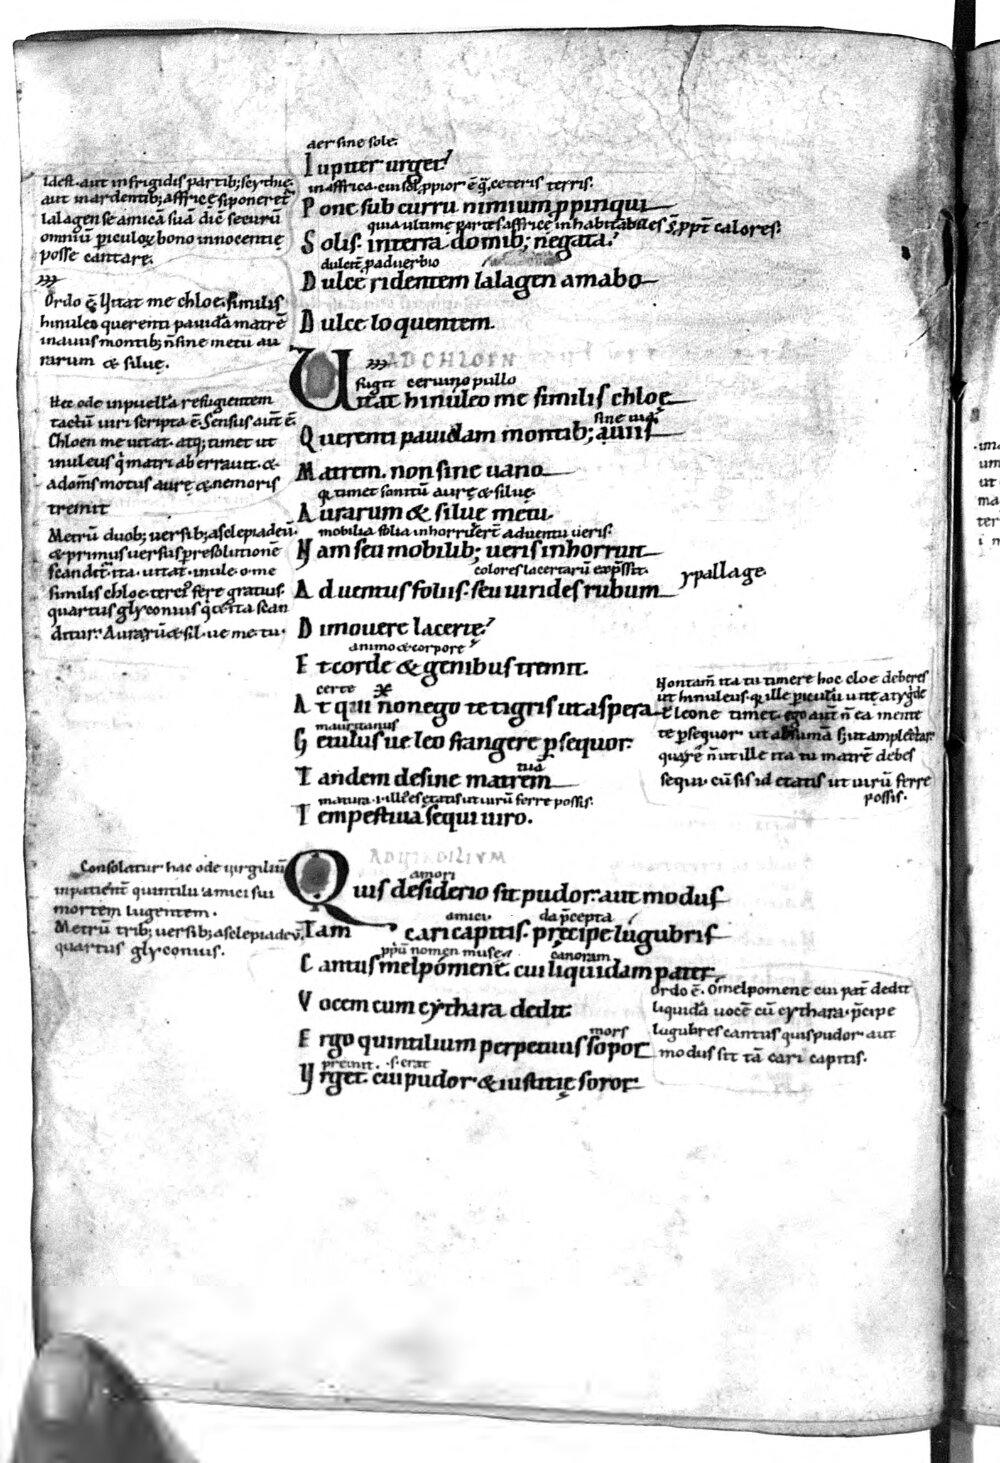 aer sine sole.
Iupiter urget.
in affrica. cui sol ꝓpior ē q̄ ceteris terris.
Pone sub curru nimium ꝓpinqui
quia ultime partes affrice inhabitabiles s̄ ꝓpt̄ calores.
Solis. in terra domib; negata.
dulcit̄ ꝓ aduerbio
Dulcę ridentem lalagen amabo
Dulce loquentem.
Idest. aut in frigidis partib; scythię.
aut in ardentib; affricę si poneret̄
lalagen se amicā suā dic̄ securū
omniū periculoꝝ bono innocentię
posse cantare.
Ordo ē. Uitat me chloe. similis
hinuleo querenti pauidā matrē
in auiis montib; n̄ sine metu au
rarum & siluę.
Hec ode in puellā refugientem
tactū uiri scripta ē. Sensus aut̄ ē.
Chloen me uitat. atq; timet ut
inuleus q̄ matri aberrauit. &
ad om̄s motus aurę & nemoris
tremit
Metrū duob; uersib; asclepiadeū.
& primus uersus p̱ resolutionē
scandit̄ ita. uitat. inule. o me
similis chloe. tercī fere gratius.
quartus glyconius q̄ ita scan
ditur. Aurarū & sil. ue me tu.
AD CHLOEN
fugit ceruino pullo
Uitat hinuleo me similis chloę
sine uia
Querenti pauidam montib; auiis
Matrem. non sine uano
q. timet sonitū aurę & siluę
Aurarum & siluę metu.
mobilia folia inhorruert̄ aduentu ueris.
Nam seu mobilib; ueris inhorruit
colores lacertarū exp̄ssit.
Aduentus foliis. seu uirides rubum
ypallage
Dimouere lacertę.
animo & corpore
Et corde & genibus tremit.
certe
At qui n̄on ego te tigris ut aspera
mauritanus
Getulusue leo frangere ꝑsequor.
tuā
Tandem desine matrem
matura. i. illīes ętatis ut uirū ferre possis.
Tempestiua sequi uiro.
Non tam̄ ita tu timere hoc cloe deberes
ut hinuleus. q. ille ꝑiculū uitę a tygride
ł leone timet. ego aut̄ n̄ ea mente
te ꝑsequor. ut absumā s; ut amplectar.
quarē n̄ ut ille ita tu matrē debes
sequi. cū sis id etatis ut uirū ferre
possis.
AD VIRGILIVM
amori
Quis desiderio sit pudor. aut modus
amici. da p̄cepta
Tam cari capitis. p̄cipe lugubris
ꝓpriū nomen muse canoram
Cantus melpomenē. cui liquidam pater
Vocem cum cythara dedit.
mors
Ergo quintilium perpetuus sopor
premit. .s. erat
Urget. cui pudor & iustitię soror.
Consolatur hac ode uirgiliū
inpatient̄ quintilii amici sui
mortem lugentem.
Metrū trib; uersib; asclepiadeū.
quartus glyconius.
Ordo ē. O melpomene cui pat̄ dedit
liquidā uocē cū cythara. p̄cipe
lugubres cantus quis pudor aut
modus sit tā cari capitis.